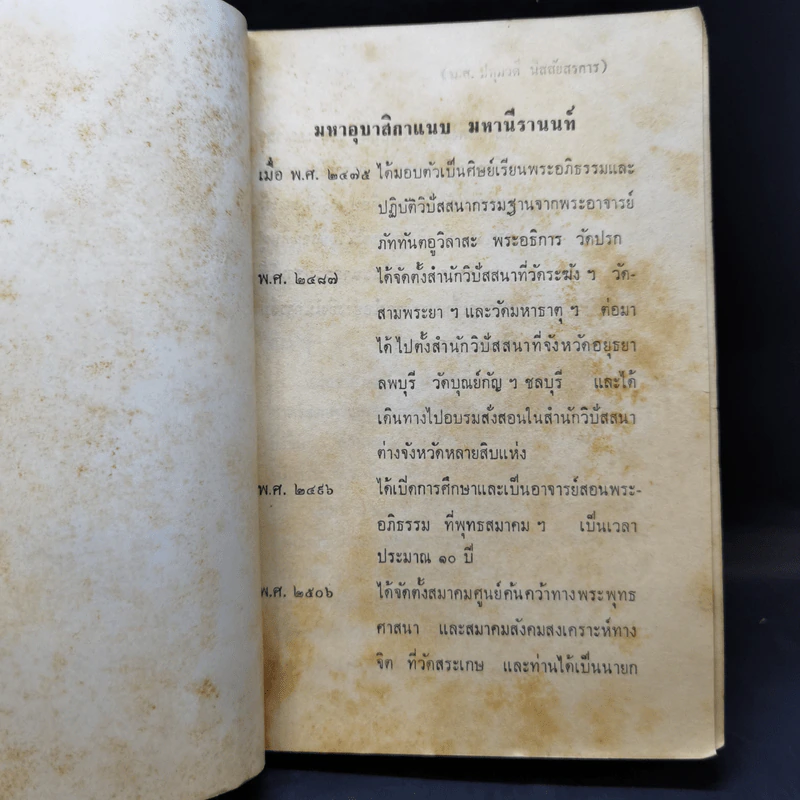 มหาอุบาสิกาแนบ มหานีรานนท์
เมื่อ พ.ศ. ๒๔๗๕ ได้มอบตัวเป็นศิษย์เรียนพระอภิธรรมและ
ปฏิบัติวิปัสสนากรรมฐานจากพระอาจารย์
ภัททันตอูวิลาสะ พระอธิการ วัดปรก
พ.ศ. ๒๔๘๗ ได้จัดตั้งสำนักวิปัสสนาที่วัดระฆัง ฯ วัด-
สามพระยา ฯ และวัดมหาธาตุ ฯ ต่อมา
ได้ไปตั้งสำนักวิปัสสนาที่จังหวัดอยุธยา
ลพบุรี วัดบุณย์กัญ ฯ ชลบุรี และได้
เดินทางไปอบรมสั่งสอนในสำนักวิปัสสนา
ต่างจังหวัดหลายสิบแห่ง
พ.ศ. ๒๔๙๖ ได้เปิดการศึกษาและเป็นอาจารย์สอนพระ-
อภิธรรม ที่พุทธสมาคม ฯ เป็นเวลา
ประมาณ ๑๐ ปี
พ.ศ. ๒๕๐๖ ได้จัดตั้งสมาคมศูนย์ค้นคว้าทางพระพุทธ
ศาสนา และสมาคมสังคมสงเคราะห์ทาง
จิต ที่วัดสระเกษ และท่านได้เป็นนายก